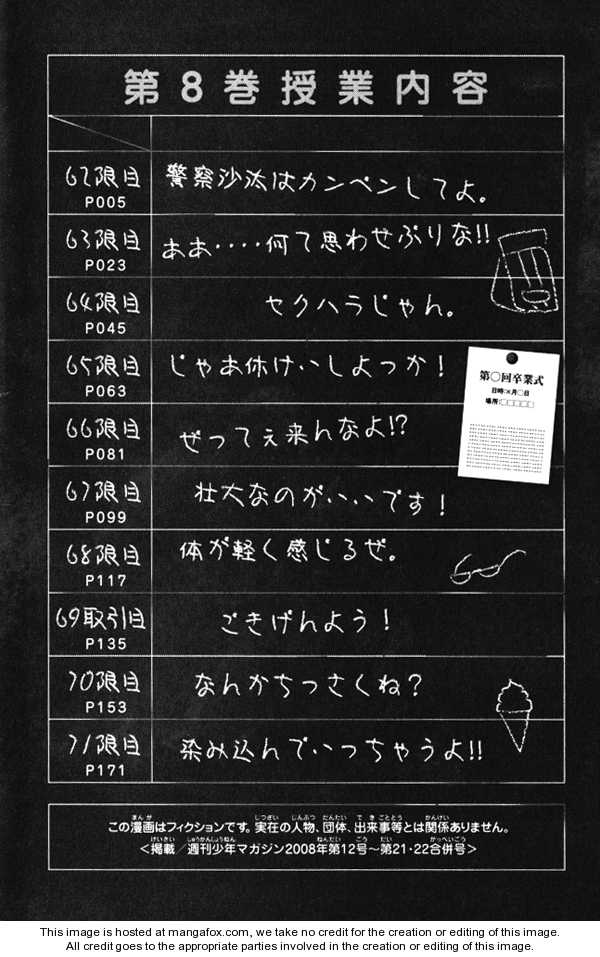 第8巻授業内容
62限目 P005 警察沙汰はカンベンしてよ。
63限目 P023 ああ‥‥何て思わせぶりな!!
64限目 P045 セクハラじゃん。
65限目 P063 じゃあ休けいしよっか!
第〇回卒業式
日時:×月〇日
場所:□□□□□
66限目 P081 ぜってぇ来んなよ!?
67限目 P099 壮大なのがいいです!
68限目 P117 体が軽く感じるぜ。
69取引目 P135 ごきげんよう!
70限目 P153 なんかちっさくね?
71限目 P171 染み込んでいっちゃうよ!!
この漫画はフィクションです。実在の人物、団体、出来事等とは関係ありません。
<掲載/週刊少年マガジン2008年第12号〜第21・22合併号>
This image is hosted at mangafox.com, we take no credit for the creation or editing of this image.
All credit goes to the appropriate parties involved in the creation or editing of this image.